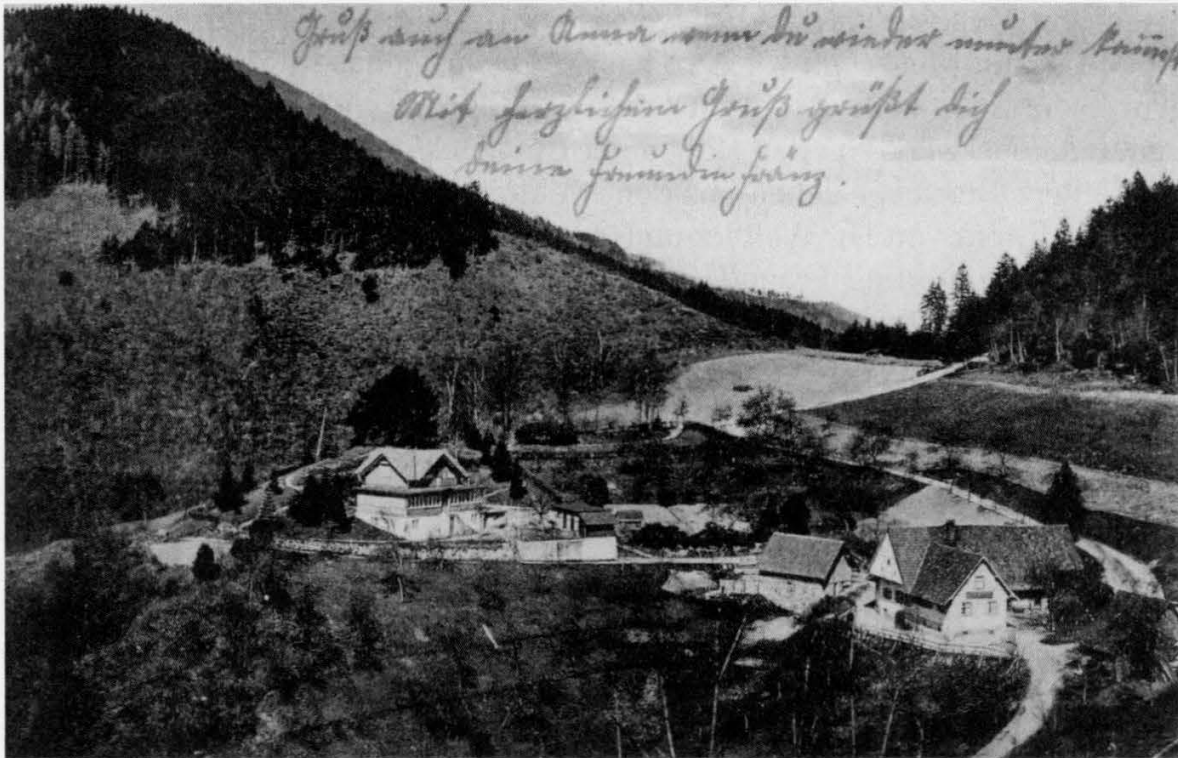 Gruß auch an Anna wenn du wieder munter
Mit herzlichem Gruß grüßt dich
deine Freundin Fränz.